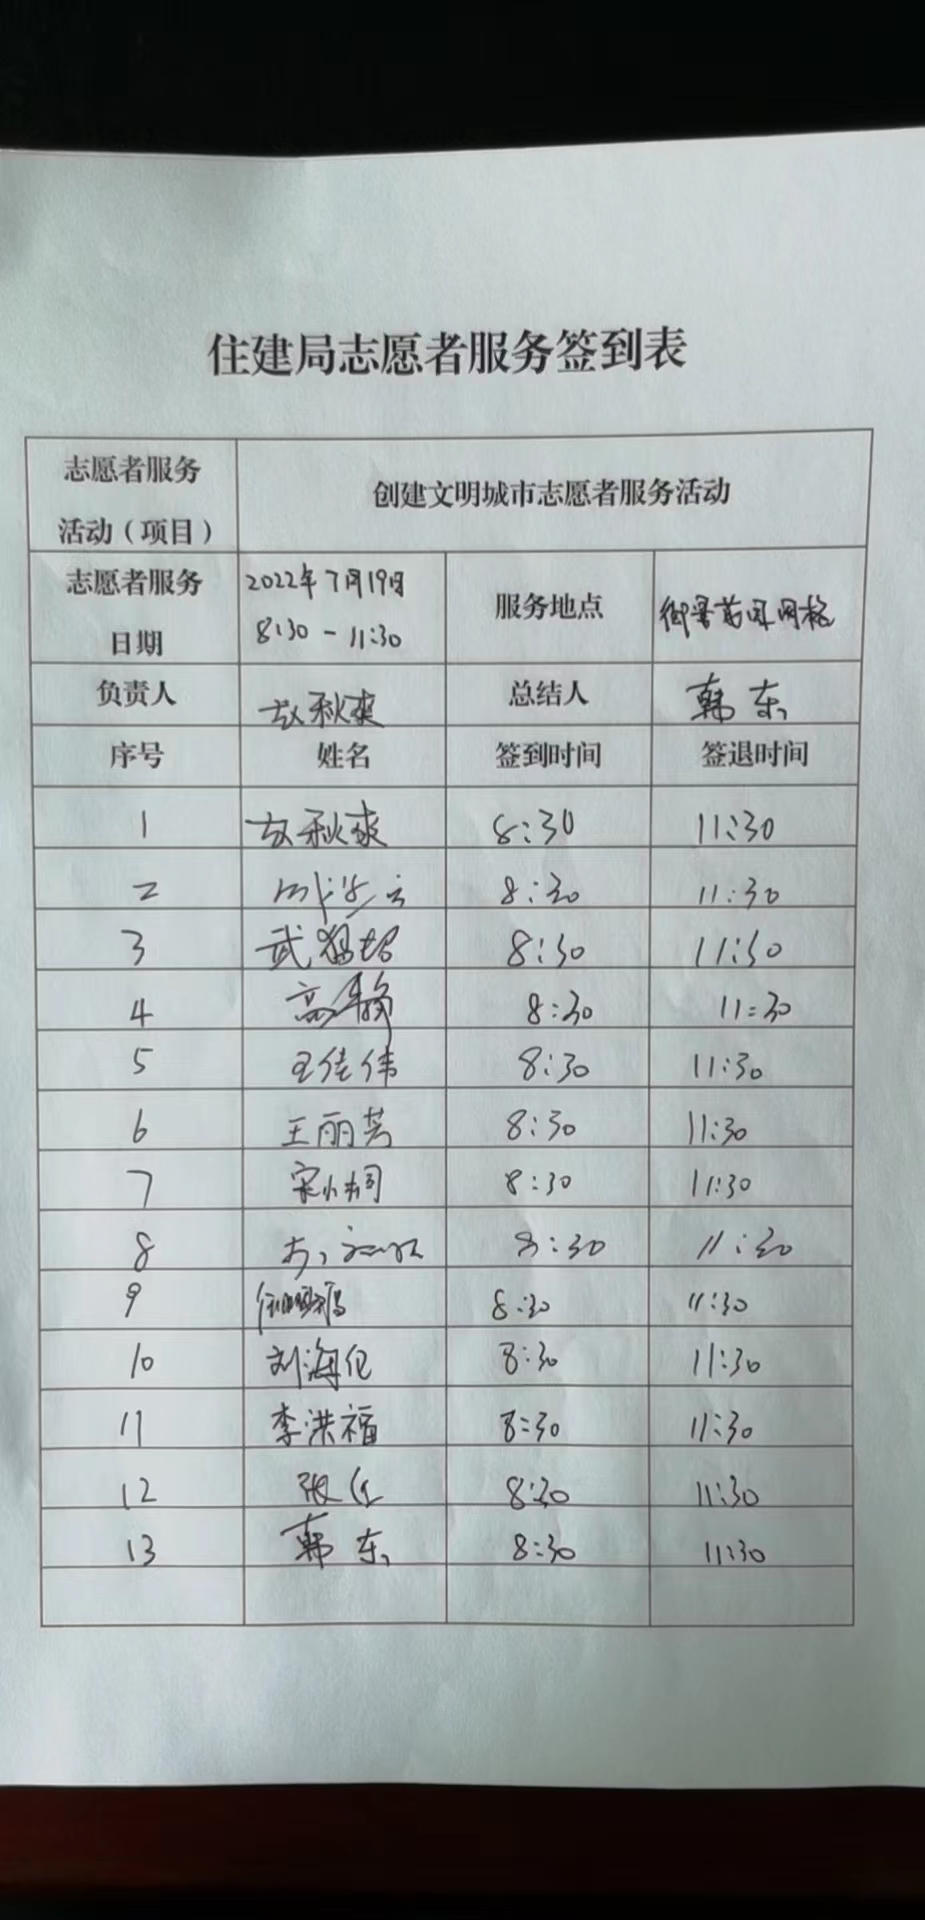 住建局志愿者服务签到表
志愿者服务
活动（项目）
创建文明城市志愿者服务活动
志愿者服务
日期
2022年7月19日
8:30-11:30
服务地点
御景花园网格
负责人
赵秋爽
总结人
韩东
序号 姓名 签到时间 签退时间
1 赵秋爽 8:30 11:30
2 8:30 11:30
3 武 8:30 11:30
4 高静 8:30 11:30
5 王佳伟 8:30 11:30
6 王丽芸 8:30 11:30
7 宋 8:30 11:30
8 8:30 11:30
9 8:30 11:30
10 刘海 8:30 11:30
11 李洪福 8:30 11:30
12 张 8:30 11:30
13 韩东 8:30 11:30